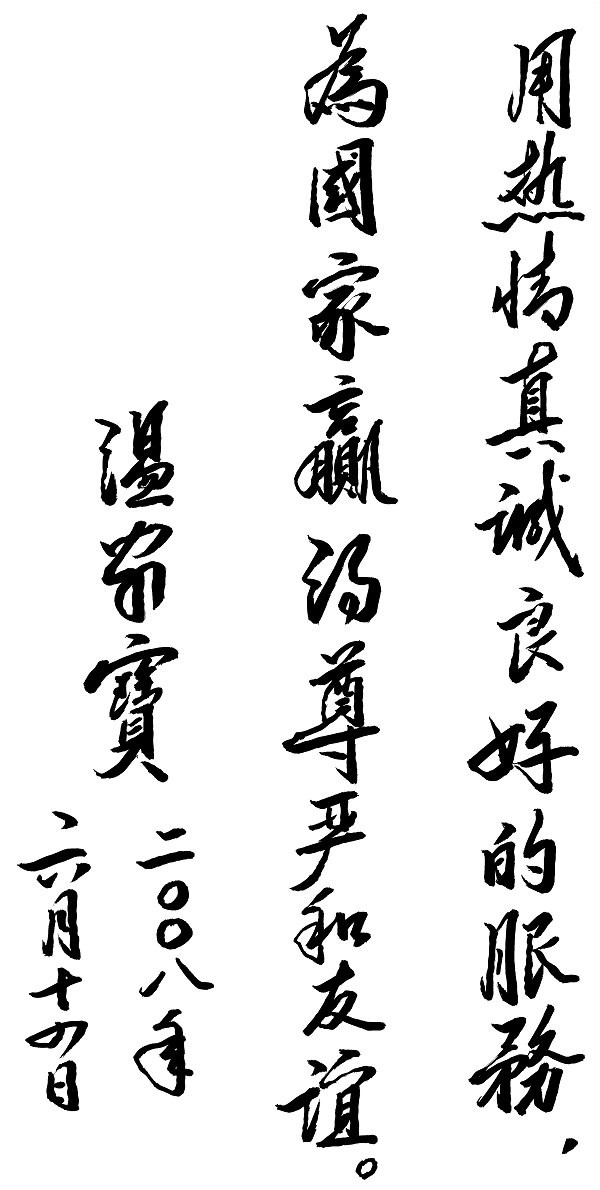 用热情真诚良好的服務，
為國家赢得尊严和友谊。
温家寶
二〇〇八年
六月十四日